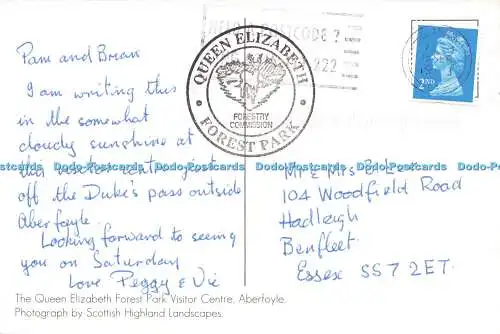 Pam and Brian
I am writing this
in the somewhat
cloudy sunshine at
this visitor centre just
off the Duke's pass outside
Aberfoyle.
Looking forward to seeing
you on Saturday
Love Peggy & Vic
The Queen Elizabeth Forest Park Visitor Centre, Aberfoyle.
Photograph by Scottish Highland Landscapes.
POSTCODE ?
222
QUEEN ELIZABETH
FORESTRY
COMMISSION
FOREST PARK
2ND
Mr & Mrs
104 Woodfield Road
Hadleigh
Benfleet
Essex SS7 2ET.
Dodo-Postcards Dodo-Postcards Dodo-Postcards Dodo-Postcards Dodo-Postcards